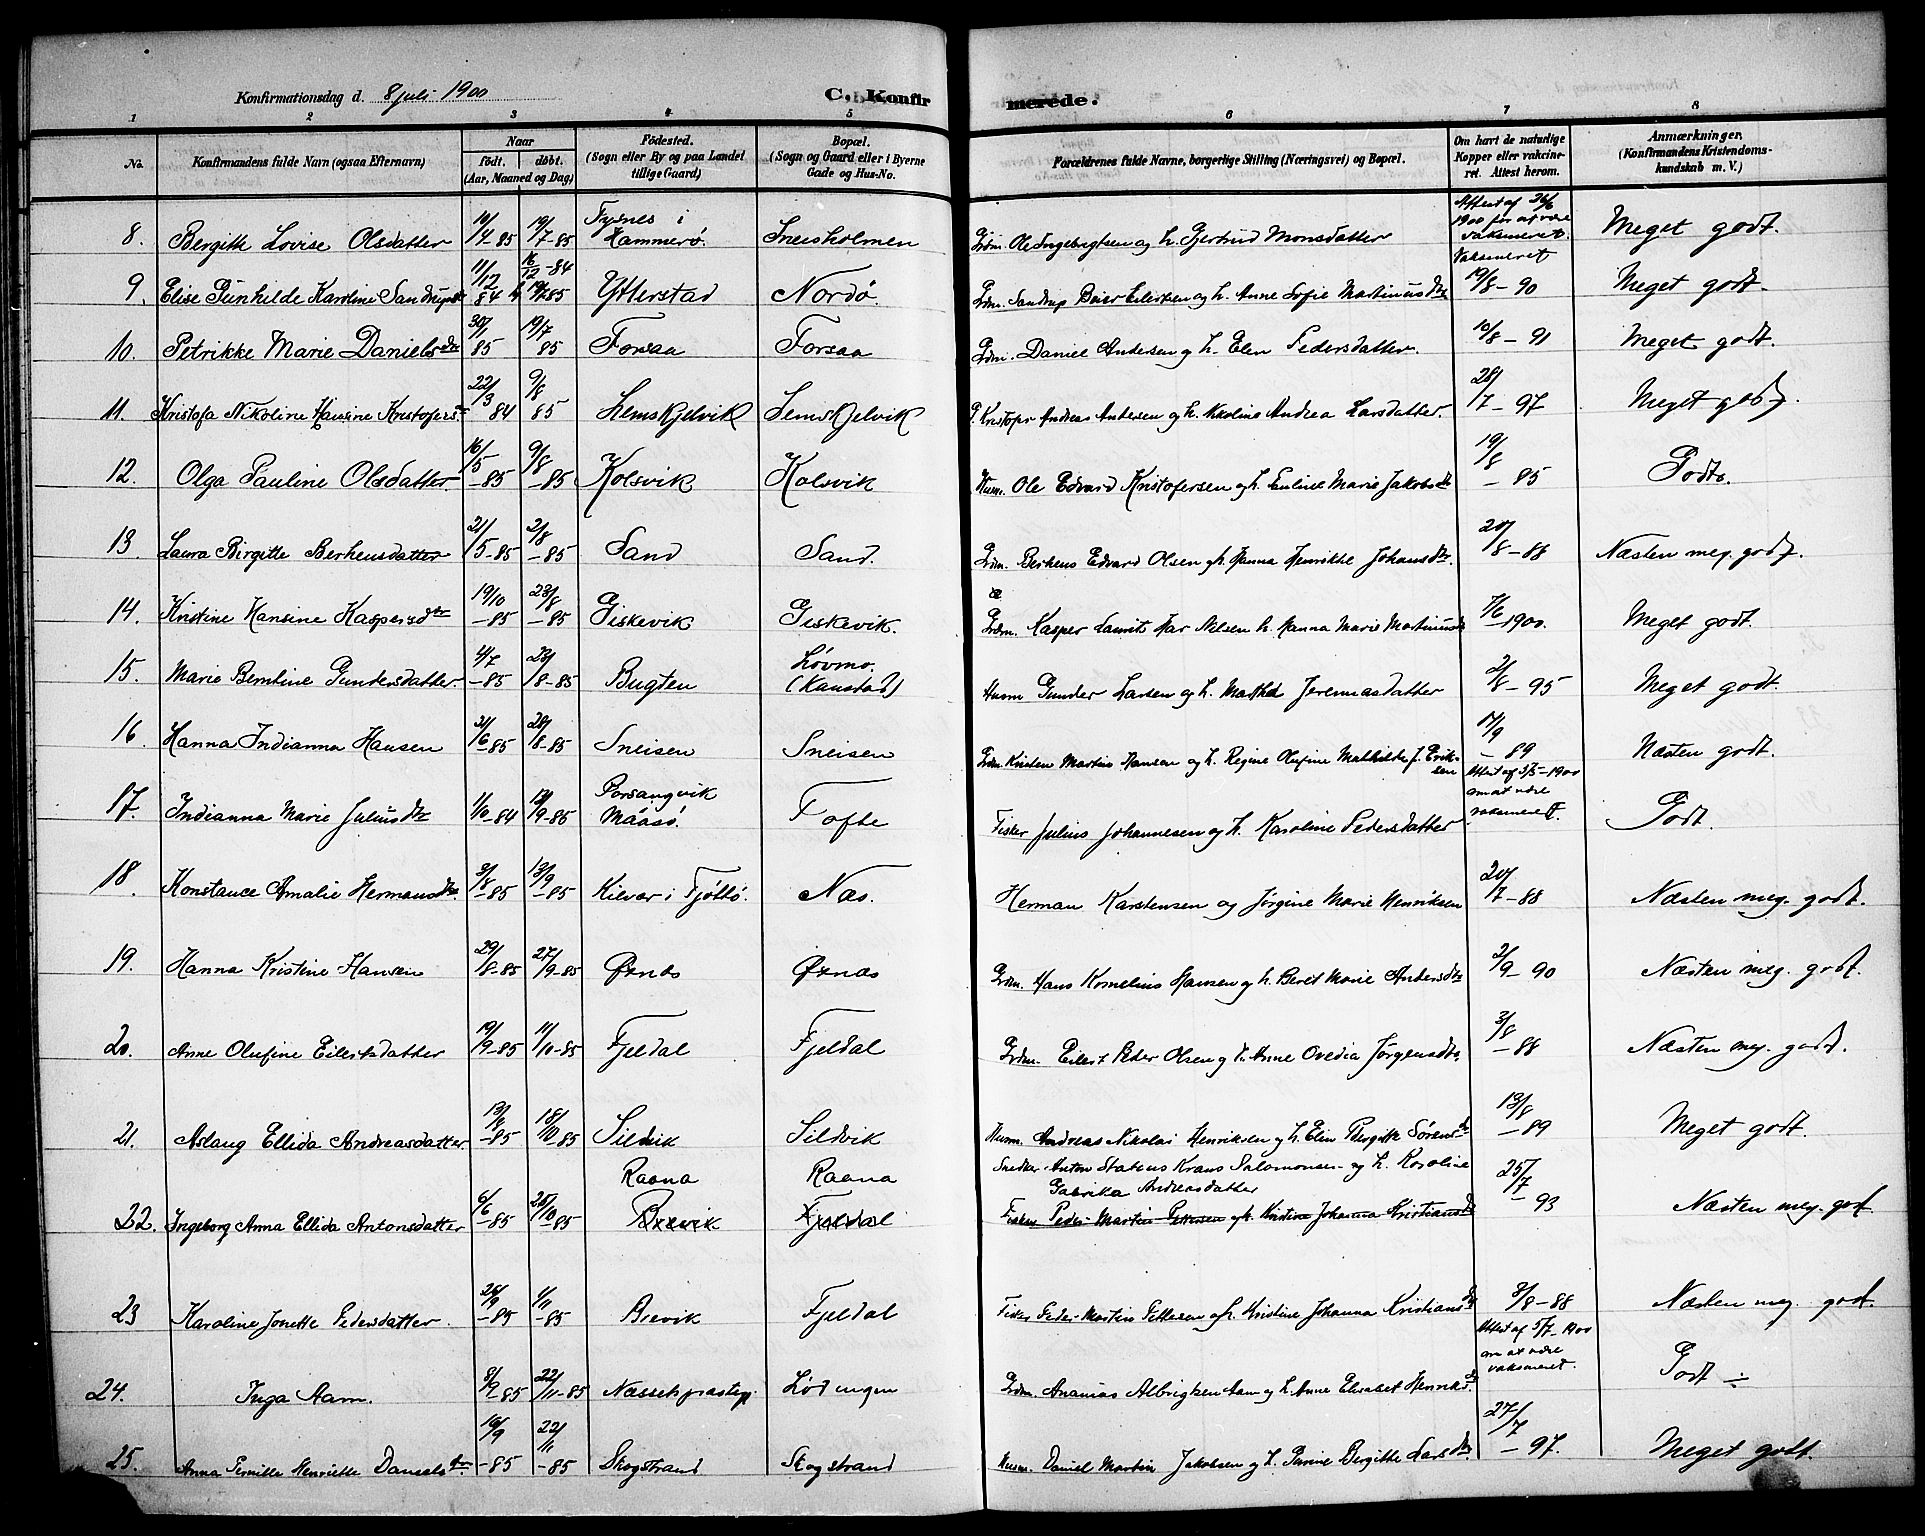 Konfirmationsdag d. 8 juli 1900
C. Konfirmerede.
1 2 3 4 5 6 7 8
No.
Konfirmandens fulde Navn (ogsaa Efternavn)
Naar
født. døbt.
(Aar, Maaned og Dag)
Fødested.
(Sogn eller By og paa Landet
tillige Gaard)
Bopæl.
(Sogn og Gaard eller i Byerne
Gade og Hus-No.
Forældrenes fulde Navne, borgerlige Stilling (Næringsvei) og Bopæl.
Om havt de naturlige
Kopper eller vakcine-
ret. Attest herom.
Anmærkninger.
(Konfirmandens Kristendoms-
kundskab m. V.)
8. Bergitte Lovise Olsdatter 10/4-85 19/7-85 Tysnes i Hammerø. Sneisholmen Grdm. Ole Ingebrigtsen og h. Gjertrud Monsdatter Attest af 26/6 1900 for at være vaksineret. Meget godt.
9. Elise Gunhilde Karoline Sandrupsdtr 11/12 84 16/12-84 19/7 85 Ytterstad Nordø. Grdm. Sandrup Beier Eilertsen og h. Anne Sofie Martinusdtr Vaksineret 19/8-90 Meget godt.
10. Petrikke Marie Danielsdtr 30/1 85 19/7 85 Forsaa Forsaa Grdm. Daniel Andersen og h. Elen Pedersdatter. 10/8-91 Meget godt.
11. Kristofa Nikoline Hansine Kristofersdtr 22/3 84 9/8 85 Lemskjelvik Lemskjelvik Kristofer Andreas Andersen og h. Nikoline Andrea Larsdatter. 28/7-97 Meget godt.
12. Olga Pauline Olsdatter. 16/5-85 9/8-85 Kolsvik Kolsvik Husm. Ole Edvard Kristofersen og h. Pauline Marie Jakobsdtr 19/8-85 Godt.
13. Laura Birgitte Berheusdatter 21/5-85 2/8-85 Sand Sand. Grdm. Berheus Edvard Olsen og h. Hanna Henrikke Johansdtr. 20/8-88 Næsten meg. godt.
14. Kristine Hansine Kaspersdtr 19/10-85 23/8-85 Giskevik Giskevik. Grdm. Kasper Laurit Nielsen h. Hanna Marie Martinusdtr 7/6-1900. Meget godt.
15. Marie Berntine Gundersdatter. 4/7-85 23/8-85 Bugten Løvmo. (Kanstad) Husm Gunder Larsen og h. Martha Jeremiasdatter 2/8-95 Meget godt.
16. Hanna Indianna Hansen 21/6-85 28/8-85 Sneisen Sneisen Grdm. Kristen Martin Hansen og h. Regine Olufine Mathilde f. Eriksen 17/9-89 Næsten godt.
17. Indianna Marie Juliusdtr 1/10-84 13/9-85 Porsangvik Måasø. Tofte Fisker Julius Johannesen og h. Karoline Pedersdatter Attest af 3/5-1900 om at være vaksineret. Godt.
18. Konstance Amalie Hermansdtr. 3/8-85 13/9-85 Kilvær i Tjøttø. Næs. Herman Karstensen og Jørgine Marie Henriksen 20/7-88 Næsten meg. godt.
19. Hanna Kristine Hansen 29/8-85 27/9-85 Øxnæs Øxnæs Grdm. Hans Kornelius Hansen og h. Beret Marie Andersdtr 2/9-90 Næsten meg. godt.
20. Anne Olufine Eilertsdatter 19/9-85 11/10-85 Fjeldal Fjeldal Grdm. Eilert Peder Olsen og h. Anne Ovedia Jørgensdtr. 3/8-88 Næsten meg. godt.
21. Aslaug Ellida Andreasdatter. 13/8-85 18/10 85 Sildvik Sildvik Husm. Andreas Nikolai Henriksen og h. Elin Bergitte Sørensdtr 13/8-89 Meget godt.
22. Ingeborg Anna Ellida Antonsdatter 6/6-85 25/10-85 Raana Brevik Raana Fjeldal Snedker Anton Statius Krans Salomonsen og h. Karoline Gabrika Andreasdatter
Fisker Peder Martin Pettersen og h. Kristine Johanna Kristiansdtr 25/7-93 Næsten meg. godt.
23 Karoline Jonette Pedersdatter. 26/9-85 1/11-85 Brevik Fjeldal Fisker Peder Martin Pettersen og h. Kristine Johanna Kristiansdtr 3/8-88 Næsten meg. godt.
24. Inga Aam. 8/9-85 22/11-85 Næssets præstegj. Lødingen Grdm. Ananias Albrigtsen Aam og h. Anne Elisabet Henriksdtr Attest af 5/7-1900 om at være vaksineret. Godt ÷
25. Anna Pernille Henriette Danielsdtr 19/9-85 22/11-85 Skogstrand Skogstrand Husm. Daniel Martin Jakobsen og h. Pernine Bergitte Larsdtr. 27/7-97. Meget godt.